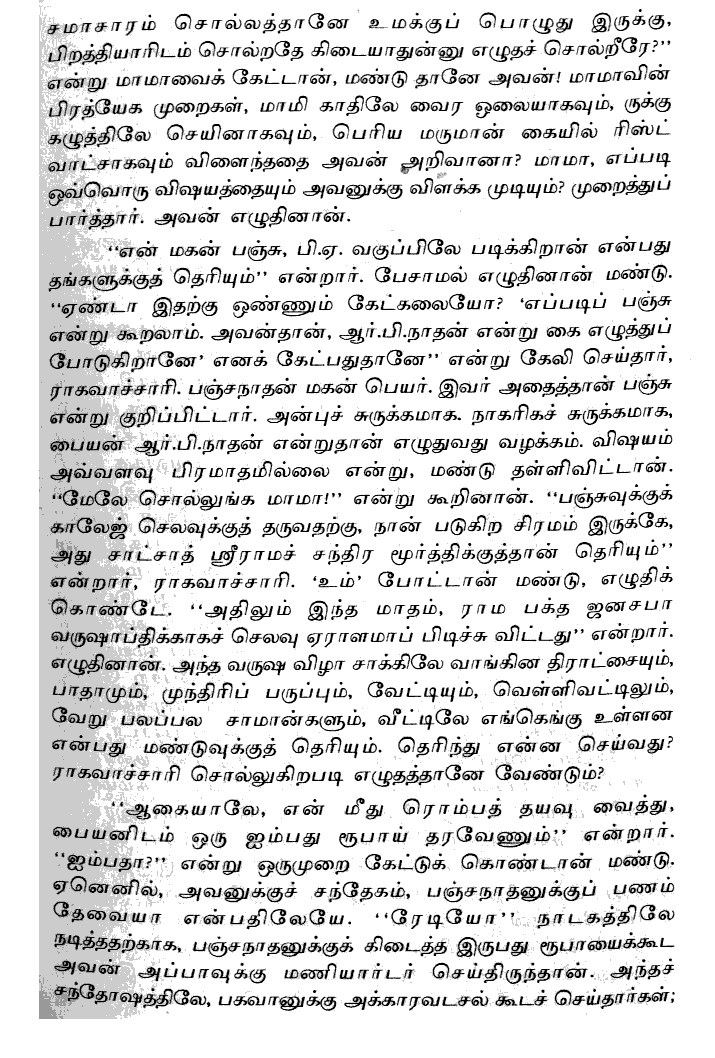 சமாசாரம் சொல்லத்தானே உமக்குப் பொழுது இருக்கு,
பிறத்தியாரிடம் சொல்றதே கிடையாதுன்னு எழுதச் சொல்றீரே?''
என்று மாமாவைக் கேட்டான், மண்டு தானே அவன்! மாமாவின்
பிரத்யேக முறைகள், மாமி காதிலே வைர ஓலையாகவும், ருக்கு
கழுத்திலே செயினாகவும், பெரிய மருமான் கையில் ரிஸ்ட்
வாட்சாகவும் விளைந்ததை அவன் அறிவானா? மாமா, எப்படி
ஒவ்வொரு விஷயத்தையும் அவனுக்கு விளக்க முடியும்? முறைத்துப்
பார்த்தார். அவன் எழுதினான்.
''என் மகன் பஞ்சு, பி.ஏ. வகுப்பிலே படிக்கிறான் என்பது
தங்களுக்குத் தெரியும்'' என்றார். பேசாமல் எழுதினான் மண்டு.
''ஏண்டா இதற்கு ஒண்ணும் கேட்கலையோ? 'எப்படிப் பஞ்சு
என்று கூறலாம். அவன்தான், ஆர்.பி.நாதன் என்று கை எழுத்துப்
போடுகிறானே' எனக் கேட்பதுதானே'' என்று கேலி செய்தார்,
ராகவாச்சாரி. பஞ்சநாதன் மகன் பெயர். இவர் அதைத்தான் பஞ்சு
என்று குறிப்பிட்டார். அன்புச் சுருக்கமாக. நாகரிகச் சுருக்கமாக,
பையன் ஆர்.பி.நாதன் என்றுதான் எழுதுவது வழக்கம். விஷயம்
அவ்வளவு பிரமாதமில்லை என்று, மண்டு தள்ளிவிட்டான்.
''மேலே சொல்லுங்க மாமா!'' என்று கூறினான். ''பஞ்சுவுக்குக்
காலேஜ் செலவுக்குத் தருவதற்கு, நான் படுகிற சிரமம் இருக்கே,
அது சாட்சாத் ஸ்ரீராமச் சந்திர மூர்த்திக்குத்தான் தெரியும்''
என்றார், ராகவாச்சாரி. 'உம்' போட்டான் மண்டு, எழுதிக்
கொண்டே. ''அதிலும் இந்த மாதம், ராம பக்த ஜனசபா
வருஷாப்திக்காகச் செலவு ஏராளமாப் பிடிச்சு விட்டது'' என்றார்.
எழுதினான். அந்த வருஷ விழா சாக்கிலே வாங்கின திராட்சையும்,
பாதாமும், முந்திரிப் பருப்பும், வேட்டியும், வெள்ளிவட்டிலும்,
வேறு பலப்பல சாமான்களும், வீட்டிலே எங்கெங்கு உள்ளன
என்பது மண்டுவுக்குத் தெரியும். தெரிந்து என்ன செய்வது?
ராகவாச்சாரி சொல்லுகிறபடி எழுதத்தானே வேண்டும்?
''ஆகையாலே, என் மீது ரொம்பத் தயவு வைத்து,
பையனிடம் ஒரு ஐம்பது ரூபாய் தரவேணும்'' என்றார்.
''ஐம்பதா?'' என்று ஒருமுறை கேட்டுக் கொண்டான் மண்டு.
ஏனெனில், அவனுக்குச் சந்தேகம், பஞ்சநாதனுக்குப் பணம்
தேவையா என்பதிலேயே. ''ரேடியோ'' நாடகத்திலே
நடித்ததற்காக, பஞ்சநாதனுக்குக் கிடைத்த இருபது ரூபாயைக்கூட
அவன் அப்பாவுக்கு மணியார்டர் செய்திருந்தான். அந்தச்
சந்தோஷத்திலே, பகவானுக்கு அக்காரவடசல் கூடச் செய்தார்கள்;